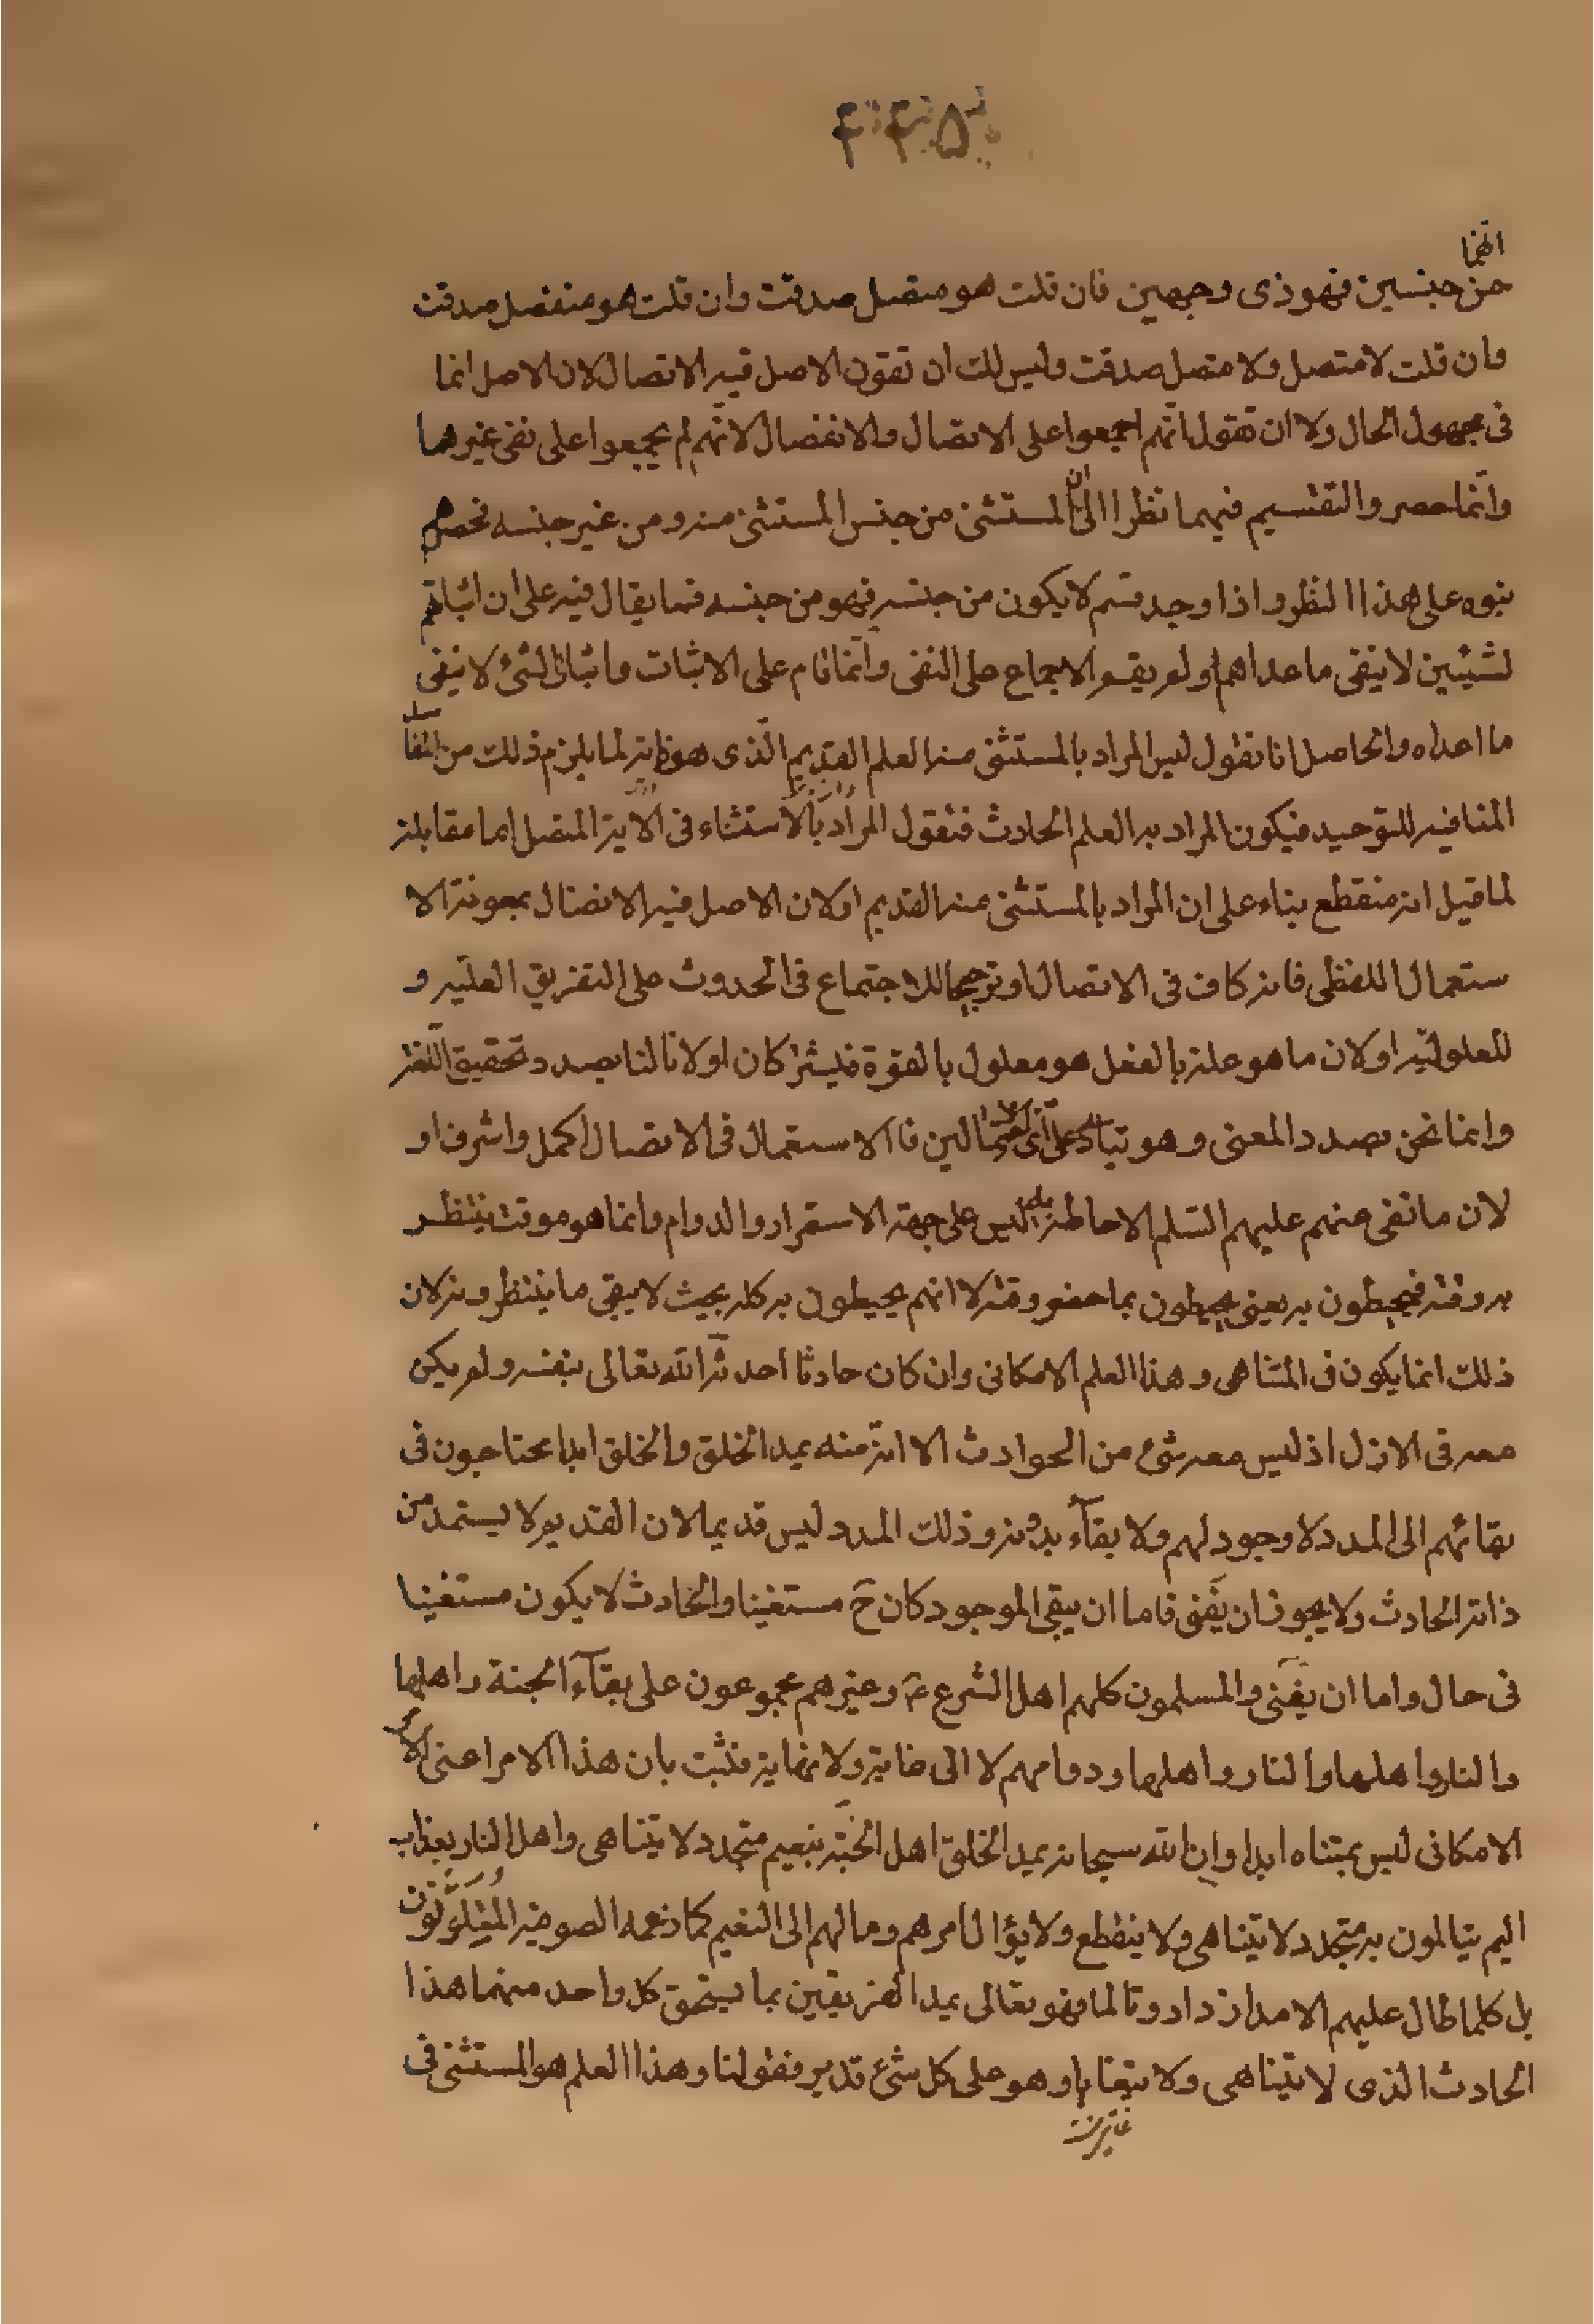 انهما
من جنسين فهو ذى وجهين فان قلت هو متصل صدقت وان قلت هو منفصل صدقت
وان قلت لا متصل ولا متصل صدقت وليس لك ان تقول الاصل فيه الاتصال لان الاصل انما
فى مجهول الحال ولا ان تقول انّهم اجمعوا على الاتصال والانفصال لانّهم لم يجمعوا على نفى غيرهما
وانّما حصر والتقسيم فيهما نظرا الى ان المستثنى من جنس المستثنى منه ومن غير جنسه فحصرهم
بنوه على هذا النظر واذا وجد قسم لا يكون من جنسه فهو من جنسه فما يقال فيه على ان اثباتهم
لشيئين لا ينفى ما عداهما ولم يقع الاجماع على النفى وانّما قام على الاثبات واثبات الشئ لا ينفى
ما اعداه والحاصل انا نقول ليس المراد بالمستثنى منه العلم القديم الّذى هو ذاته لما يلزم ذلك من المفاسد
المنافيه للتوحيد فيكون المراد به العلم الحادث فنقول المراد بالاستثناء فى الاية المتصل اما مقابلة
لما قيل انه منقطع بناء على ان المراد بالمستثنى منه القديم او لان الاصل فيه الاتصال بمعونة الا
ستعمال اللفظى فانه كاف فى الاتصال او ترجيحا للاجتماع فى الحدوث على التفريق العليّه و
المعلوليّه او لان ما هو علة بالفعل هو معلول بالقوة كان او لانا لسنا بصدد تحقيق اللّفظ
وانما نحن بصدد المعنى وهو على اى فالاستعمال فى الاتصال اكمل واشرف او
لان ما نفى عنهم عليهم السّلم الاحاطة به ليس على جهة الاستمرار والدوام وانما هو موقت ينتظر
به وقته فيحيطون به يعنى يحيطون بما حضر وقته لا انهم يحيطون به كله بحيث لا يبقى ما ينتظرونه لان
ذلك انما يكون فى المتناهى وهذا العلم الامكانى وان كان حادثا احدثه الله تعالى بنفسه ولم يكن
معه فى الازل اذ ليس معه شئ من الحوادث الا انه منه يمد الخلق والخلق ابدا محتاجون فى
بقائهم الى المدد لا وجود لهم ولا بقآء بدونه وذلك المدد ليس قديما لان القديم لا يستمد من
ذاته الحادث ولا يجوز ان يفنى فاما ان يبقى الموجود كان ح مستغنيا والحادث لا يكون مستغنيا
فى حال واما ان يفنى والمسلمون كلهم اهل الشرع وغيرهم مجمعون على بقآء الجنة واهلها
والنار واهلها والنار واهلها ودوامهم لا الى غاية ولا نهاية فثبت بان هذا الامر اعنى
الامكانى ليس بمتناه ابدا وان الله سبحانه يمد الخلق اهل الجنّة بنعيم متجدد لا يتناهى واهل النار بعذاب
اليم يتالمون به متجدد لا يتناهى ولا ينقطع ولا يؤال امرهم ومالهم الى النعيم كما زعمه الصوفيه
بل كلما طال عليهم الامد ازدادوا تالما فهو تعالى يمد الفريقين بما يستحق كل واحد منهما هذا
الحادث الذى لا يتناهى ولا وهو على كل شئ قدير فقولنا وهذا العلم هو المستثنى فى